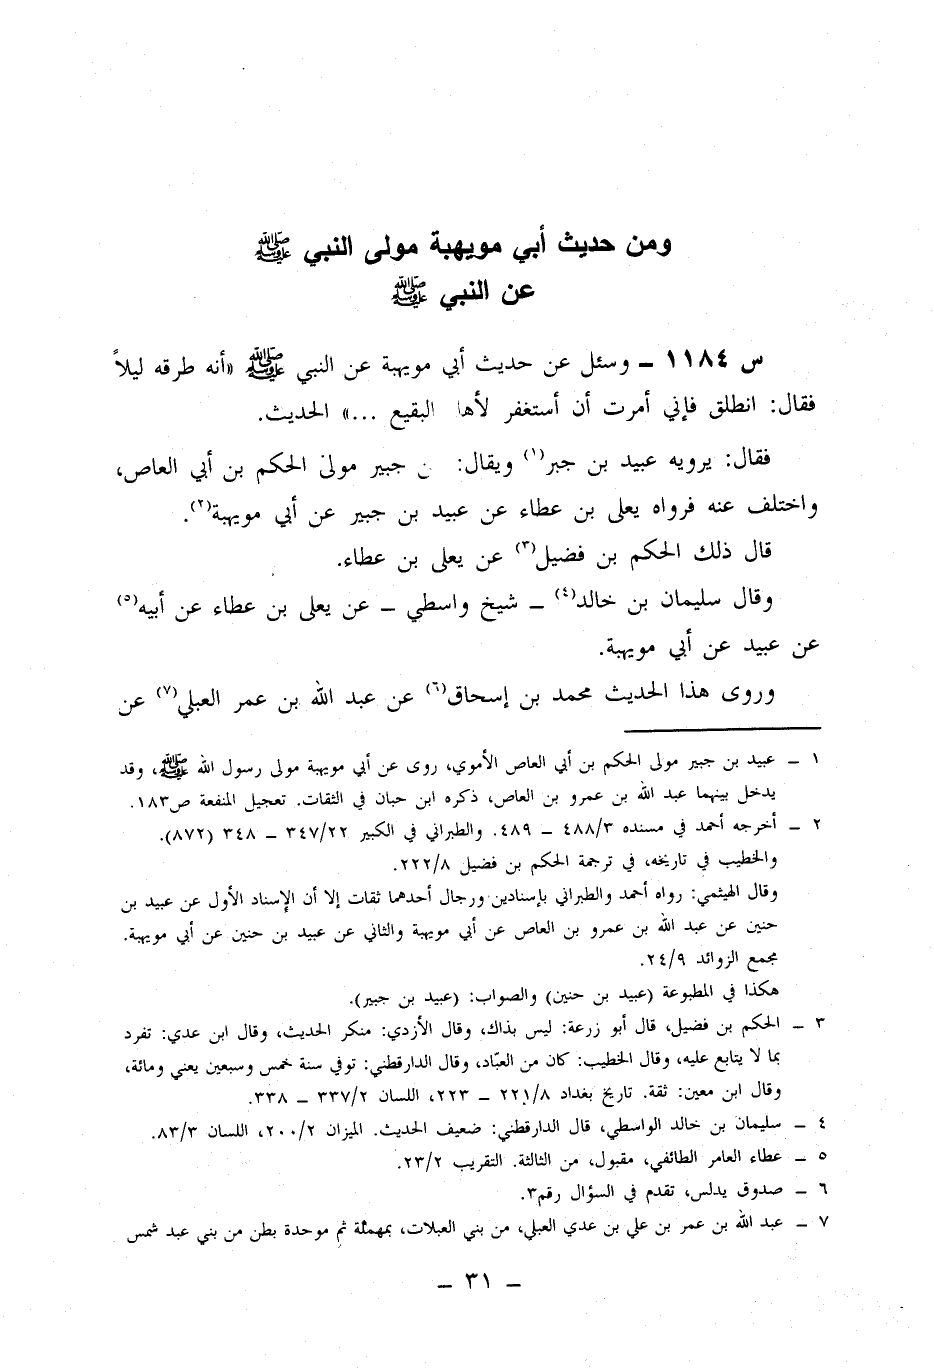 ومن حديث أبي مويهبة مولى النبي ﷺ
عن النبي ﷺ
س ١١٨٤ ــ وسئل عن حديث أبي مويهبة عن النبي ﷺ «أنه طرقه ليلاً
فقال: انطلق فإني أمرت أن أستغفر لأها البقيع ...» الحديث.
فقال: يرويه عبيد بن جبر(١) ويقال: ن جبير مولى الحكم بن أبي العاص،
واختلف عنه فرواه يعلى بن عطاء عن عبيد بن جبير عن أبي مويهبة(٢).
قال ذلك الحكم بن فضيل(٣) عن يعلى بن عطاء.
وقال سليمان بن خالد(٤) ــ شيخ واسطي ــ عن يعلى بن عطاء عن أبيه(٥)
عن عبيد عن أبي مويهبة.
وروى هذا الحديث محمد بن إسحاق(٦) عن عبد الله بن عمر العبلي(٧) عن
١ ــ عبيد بن جبير مولى الحكم بن أبي العاص الأموي، روى عن أبي مويهبة مولى رسول الله ﷺ، وقد
يدخل بينهما عبد الله بن عمرو بن العاص، ذكره ابن حبان في الثقات. تعجيل المنفعة ص١٨٣.
٢ ــ أخرجه أحمد في مسنده ٤٨٨/٣ ــ ٤٨٩. والطبراني في الكبير ٣٤٧/٢٢ ــ ٣٤٨ (٨٧٢).
والخطيب في تاريخه، في ترجمة الحكم بن فضيل ٢٢٢/٨.
وقال الهيثمي: رواه أحمد والطبراني بإسنادين ورجال أحدهما ثقات إلا أن الإسناد الأول عن عبيد بن
حنين عن عبد الله بن عمرو بن العاص عن أبي مويهبة والثاني عن عبيد بن حنين عن أبي مويهبة.
مجمع الزوائد ٢٤/٩.
هكذا في المطبوعة (عبيد بن حنين) والصواب: (عبيد بن جبير).
٣ ــ الحكم بن فضيل، قال أبو زرعة: ليس بذاك، وقال الأزدي: منكر الحديث، وقال ابن عدي: تفرد
بما لا يتابع عليه، وقال الخطيب: كان من العبّاد، وقال الدارقطني: توفي سنة خمس وسبعين يعني ومائة،
وقال ابن معين: ثقة. تاريخ بغداد ٢٢١/٨ ــ ٢٢٣، اللسان ٣٣٧/٢ ــ ٣٣٨.
٤ ــ سليمان بن خالد الواسطي، قال الدارقطني: ضعيف الحديث. الميزان ٢٠٠/٢، اللسان ٨٣/٣.
٥ ــ عطاء العامر الطائفي، مقبول، من الثالثة. التقريب ٢٣/٢.
٦ ــ صدوق يدلس، تقدم في السؤال رقم٣.
٧ ــ عبد الله بن عمر بن علي بن عدي العبلي، من بني العبلات، بمهملة ثم موحدة بطن من بني عبد شمس
ــ ٣١ ــ